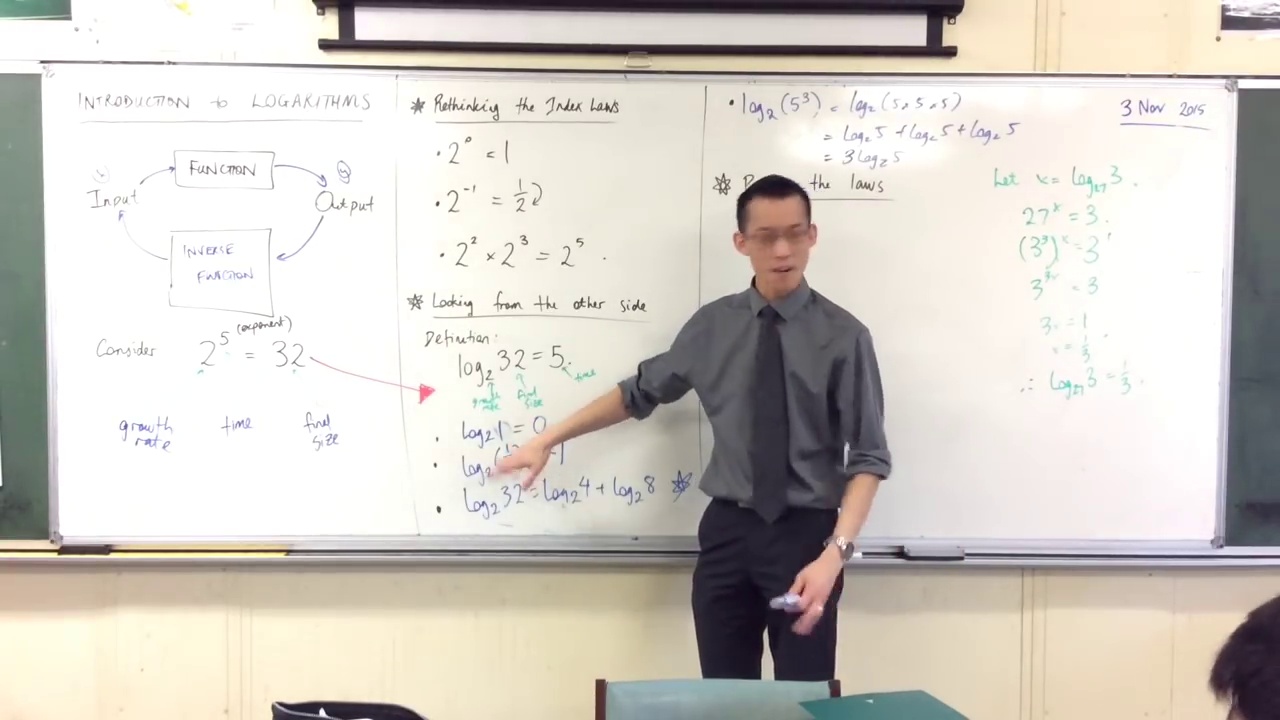 INTRODUCTION to LOGARITHMS
FUNCTION
Input
Output
INVERSE
FUNCTION
Consider 2⁵ = 32
(exponent)
growth rate
time
final size
* Rethinking the Index Laws
• 2⁰ = 1
• 2⁻¹ = 1/2
• 2² × 2³ = 2⁵ .
* Looking from the other side
Definition:
log₂ 32 = 5.
growth rate
final size
time
• log₂ 1 = 0
• log₂ -1
• log₂ 32 = log₂ 4 + log₂ 8 *
• log₂ (5³) = log₂ (5 × 5 × 5)
= log₂ 5 + log₂ 5 + log₂ 5
= 3 log₂ 5
* the laws
3 Nov 2015
Let x = log₂₇ 3 .
27ˣ = 3 .
(3³)ˣ = 3¹
3³ˣ = 3
3x = 1
x = 1/3
∴ log₂₇ 3 = 1/3 .